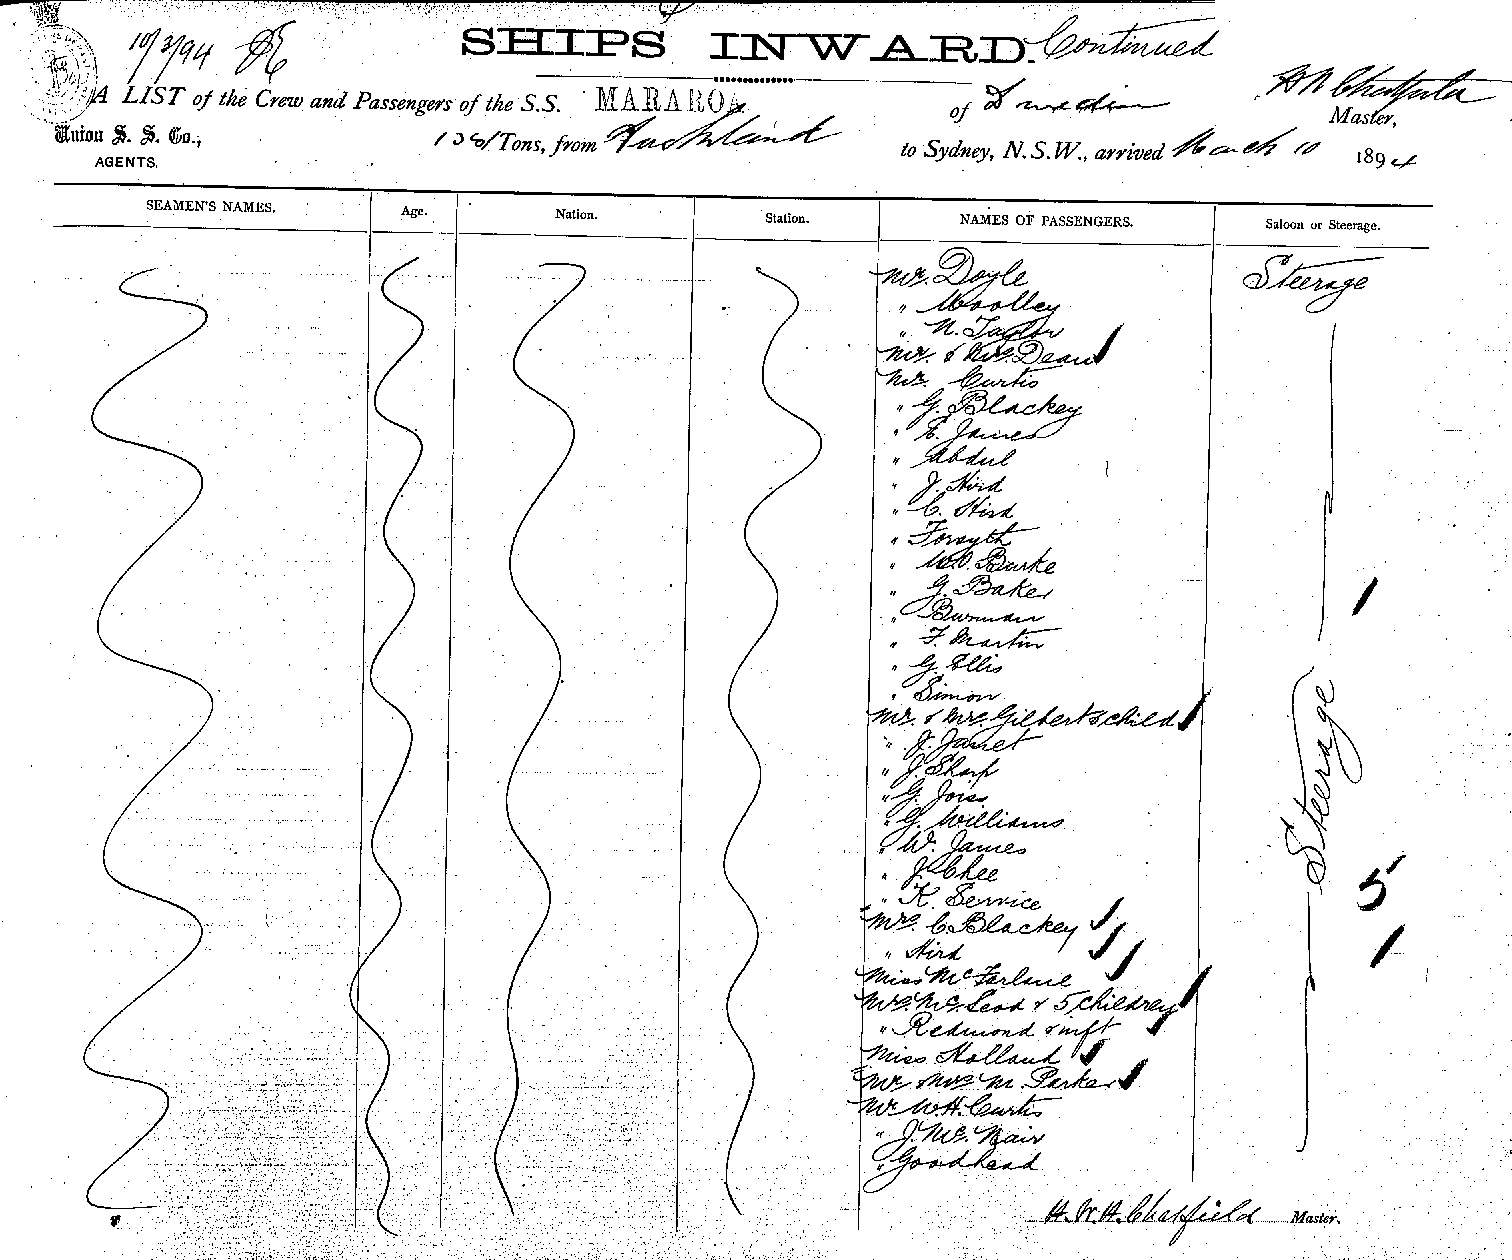 10/3/94
SHIPS INWARD. Continued
A LIST of the Crew and Passengers of the S.S. MARAROA of Dunedin
Master,
Union S. S. Co.,
AGENTS.
1381 Tons, from Auckland to Sydney, N.S.W., arrived March 10 1894
SEAMEN'S NAMES. Age. Nation. Station. NAMES OF PASSENGERS. Saloon or Steerage.
Mr. Doyle Steerage
" Woolley
" N. Taylor
Mr. & Mrs. Dean
Mr. Curtis
" G. Blackey
" E. James
" Abdul
" J. Hird
" C. Hird
" Forsyth
" W.O. Burke
" G. Baker
" Burman
" F. Martin
" G. Ellis
" Simon
Mr. & Mrs. Gilbert & child
" J. Jarret
" J. Sharp
" G. Joiss
" G. Williams
" W. James
" J. Chee
" K. Service
Mrs. C. Blackey
" Hird
Miss McFarlane
Mrs. McLeod & 5 children
" Redmond & inft
Miss Holland
Mr. Mrs. M. Parker
Mr W.H. Curtis
" J. McNair
" Goodhead
Steerage
1
5
1
H.W.H. Chatfield Master.